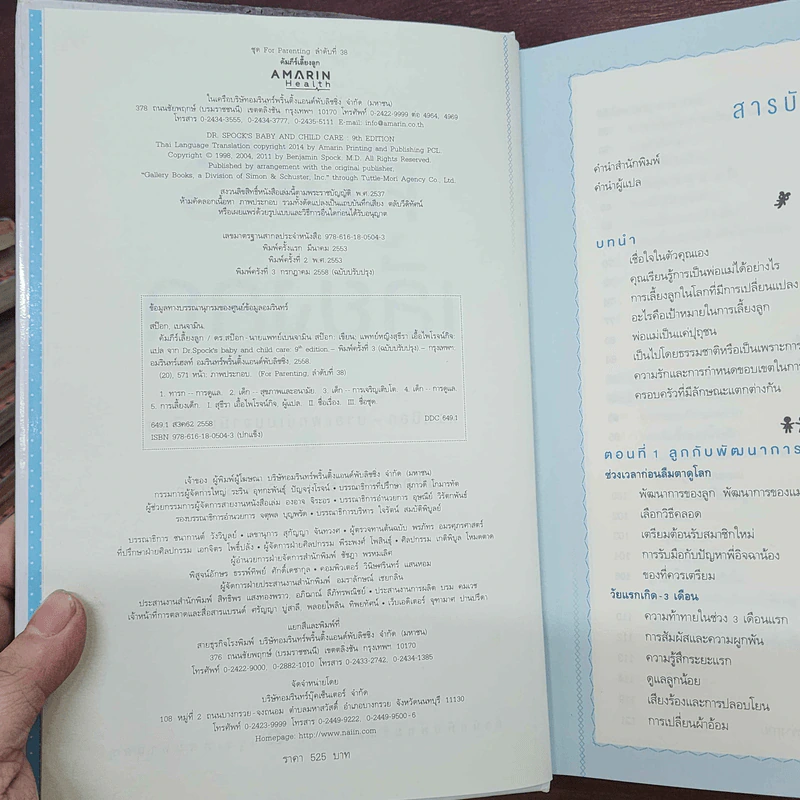 ชุด For Parenting ลำดับที่ 38
คัมภีร์เลี้ยงลูก
AMARIN
Health
ในเครือบริษัทอมรินทร์พริ้นติ้งแอนด์พับลิชชิ่ง จำกัด (มหาชน)
378 ถนนชัยพฤกษ์ (บรมราชชนนี) เขตตลิ่งชัน กรุงเทพฯ 10170 โทรศัพท์ 0-2422-9999 ต่อ 4964, 4969
โทรสาร 0-2434-3555, 0-2434-3777, 0-2435-5111 E-mail: info@amarin.co.th
DR. SPOCK'S BABY AND CHILD CARE : 9th EDITION
Thai Language Translation copyright 2014 by Amarin Printing and Publishing PCL.
Copyright © 1998, 2004, 2011 by Benjamin Spock, M.D. All Rights Reserved.
Published by arrangement with the original publisher,
"Gallery Books, a Division of Simon & Schuster, Inc." through Tuttle-Mori Agency Co. Ltd.
สงวนลิขสิทธิ์หนังสือเล่มนี้ตามพระราชบัญญัติ พ.ศ.2537
ห้ามคัดลอกเนื้อหา ภาพประกอบ รวมทั้งดัดแปลงเป็นแถบบันทึกเสียง ตลับวีดิทัศน์
หรือเผยแพร่ด้วยรูปแบบและวิธีการอื่นใดก่อนได้รับอนุญาต
เลขมาตรฐานสากลประจำหนังสือ 978-616-18-0504-3
พิมพ์ครั้งแรก มีนาคม 2553
พิมพ์ครั้งที่ 2 พ.ศ.2553
พิมพ์ครั้งที่ 3 กรกฎาคม 2558 (ฉบับปรับปรุง)
ข้อมูลทางบรรณานุกรมของศูนย์ข้อมูลอมรินทร์
สป๊อก, เบนจามิน.
คัมภีร์เลี้ยงลูก / ดร.สป๊อก-นายแพทย์เบนจามิน สป๊อก: เขียน; แพทย์หญิงสุธีรา เอื้อไพโรจน์กิจ:
แปล จาก Dr.Spock's baby and child care: 9th edition.- พิมพ์ครั้งที่ 3 (ฉบับปรับปรุง) – กรุงเทพฯ:
อมรินทร์เฮลท์ อมรินทร์พริ้นติ้งแอนด์พับลิชชิ่ง, 2558.
(20), 571 หน้า: ภาพประกอบ. (For Parenting; ลำดับที่ 38)
1. ทารก -- การดูแล. 2. เด็ก -- สุขภาพและอนามัย. 3. เด็ก -- การเจริญเติบโต. 4. เด็ก -- การดูแล.
5. การเลี้ยงเด็ก. I. สุธีรา เอื้อไพโรจน์กิจ, ผู้แปล. II. ชื่อเรื่อง. III. ชื่อชุด.
649.1 ส362 2558 DDC 649.1
ISBN 978-616-18-0504-3 (ปกแข็ง)
เจ้าของ ผู้พิมพ์ผู้โฆษณา บริษัทอมรินทร์พริ้นติ้งแอนด์พับลิชชิ่ง จำกัด (มหาชน)
กรรมการผู้จัดการใหญ่ ระริน อุทกะพันธุ์ ปัญจรุ่งโรจน์ • บรรณาธิการที่ปรึกษา สุภาวดี โกมารทัต
ผู้ช่วยกรรมการผู้จัดการสายงานหนังสือเล่ม องอาจ จิระอร • บรรณาธิการอำนวยการ อุษณีย์ วิรัตกพันธ์
รองบรรณาธิการอำนวยการ จตุพล บุญพรัด • บรรณาธิการบริหาร ใจรัตน์ สมบัติพิบูลย์
บรรณาธิการ ชนากานต์ รังวิบูลย์ • เลขานุการ สุกัญญา จันทวงศ์ • ผู้ตรวจทานต้นฉบับ พรภัทร อมรศุภศาสตร์
ที่ปรึกษาฝ่ายศิลปกรรม เอกจิตร โพธิ์ปลั่ง • ผู้จัดการฝ่ายศิลปกรรม พีระพงศ์ โพสินธุ์ • ศิลปกรรม เกติพิบูล ไหมตตาด
ผู้อำนวยการฝ่ายการจัดการสำนักพิมพ์ ชัชฎา พรหมเลิศ
พิสูจน์อักษร อรรพ์ทิพย์ ศักดิ์เดชากุล • คอมพิวเตอร์ วินิษศรินทร์ แสนทอม
ผู้จัดการฝ่ายประสานงานสำนักพิมพ์ อมราลักษณ์ เชยกลิ่น
ประสานงานสำนักพิมพ์ สิทธิพร แสงทองพราว, อภิฌาณ์ ลีภัทรพณิชย์ • ประสานงานการผลิต บรม คมเวช
เจ้าหน้าที่การตลาดและสื่อสารแบรนด์ ศรัญญา บูสาลี, พลอยไพลิน ทิพยทัศน์ • เว็บเอดิเตอร์ จุฑามาศ ปานปรีดา
แยกสีและพิมพ์ที่
สายธุรกิจโรงพิมพ์ บริษัทอมรินทร์พริ้นติ้งแอนด์พับลิชชิ่ง จำกัด (มหาชน)
376 ถนนชัยพฤกษ์ (บรมราชชนนี) เขตตลิ่งชัน กรุงเทพฯ 10170
โทรศัพท์ 0-2422-9000, 0-2882-1010 โทรสาร 0-2433-2742, 0-2434-1385
จัดจำหน่ายโดย
บริษัทอมรินทร์บุ๊คเซ็นเตอร์ จำกัด
108 หมู่ที่ 2 ถนนบางกรวย-จงถนอม ตำบลมหาสวัสดิ์ อำเภอบางกรวย จังหวัดนนทบุรี 11130
โทรศัพท์ 0-2423-9999 โทรสาร 0-2449-9222, 0-2449-9500-6
Homepage: http://www.naiin.com
ราคา 525 บาท
สารบั
คำนำสำนักพิมพ์
คำนำผู้แปล
บทนำ
เชื่อใจในตัวคุณเอง
คุณเรียนรู้การเป็นพ่อแม่ได้อย่างไร
การเลี้ยงลูกในโลกที่มีการเปลี่ยนแปลง
อะไรคือเป้าหมายในการเลี้ยงลูก
พ่อแม่เป็นแค่ปุถุชน
เป็นไปโดยธรรมชาติหรือเป็นเพราะการ
ความรักและการกำหนดขอบเขตในการ
ครอบครัวที่มีลักษณะแตกต่างกัน
ตอนที่ 1 ลูกกับพัฒนาการ
ช่วงเวลาก่อนลืมตาดูโลก
พัฒนาการของลูก พัฒนาการของแม่
เลือกวิธีคลอด
เตรียมต้อนรับสมาชิกใหม่
การรับมือกับปัญหาพี่อิจฉาน้อง
ของที่ควรเตรียม
วัยแรกเกิด-3 เดือน
ความท้าทายในช่วง 3 เดือนแรก
การสัมผัสและความผูกพัน
ความรู้สึกระยะแรก
ดูแลลูกน้อย
เสียงร้องและการปลอบโยน
การเปลี่ยนผ้าอ้อม